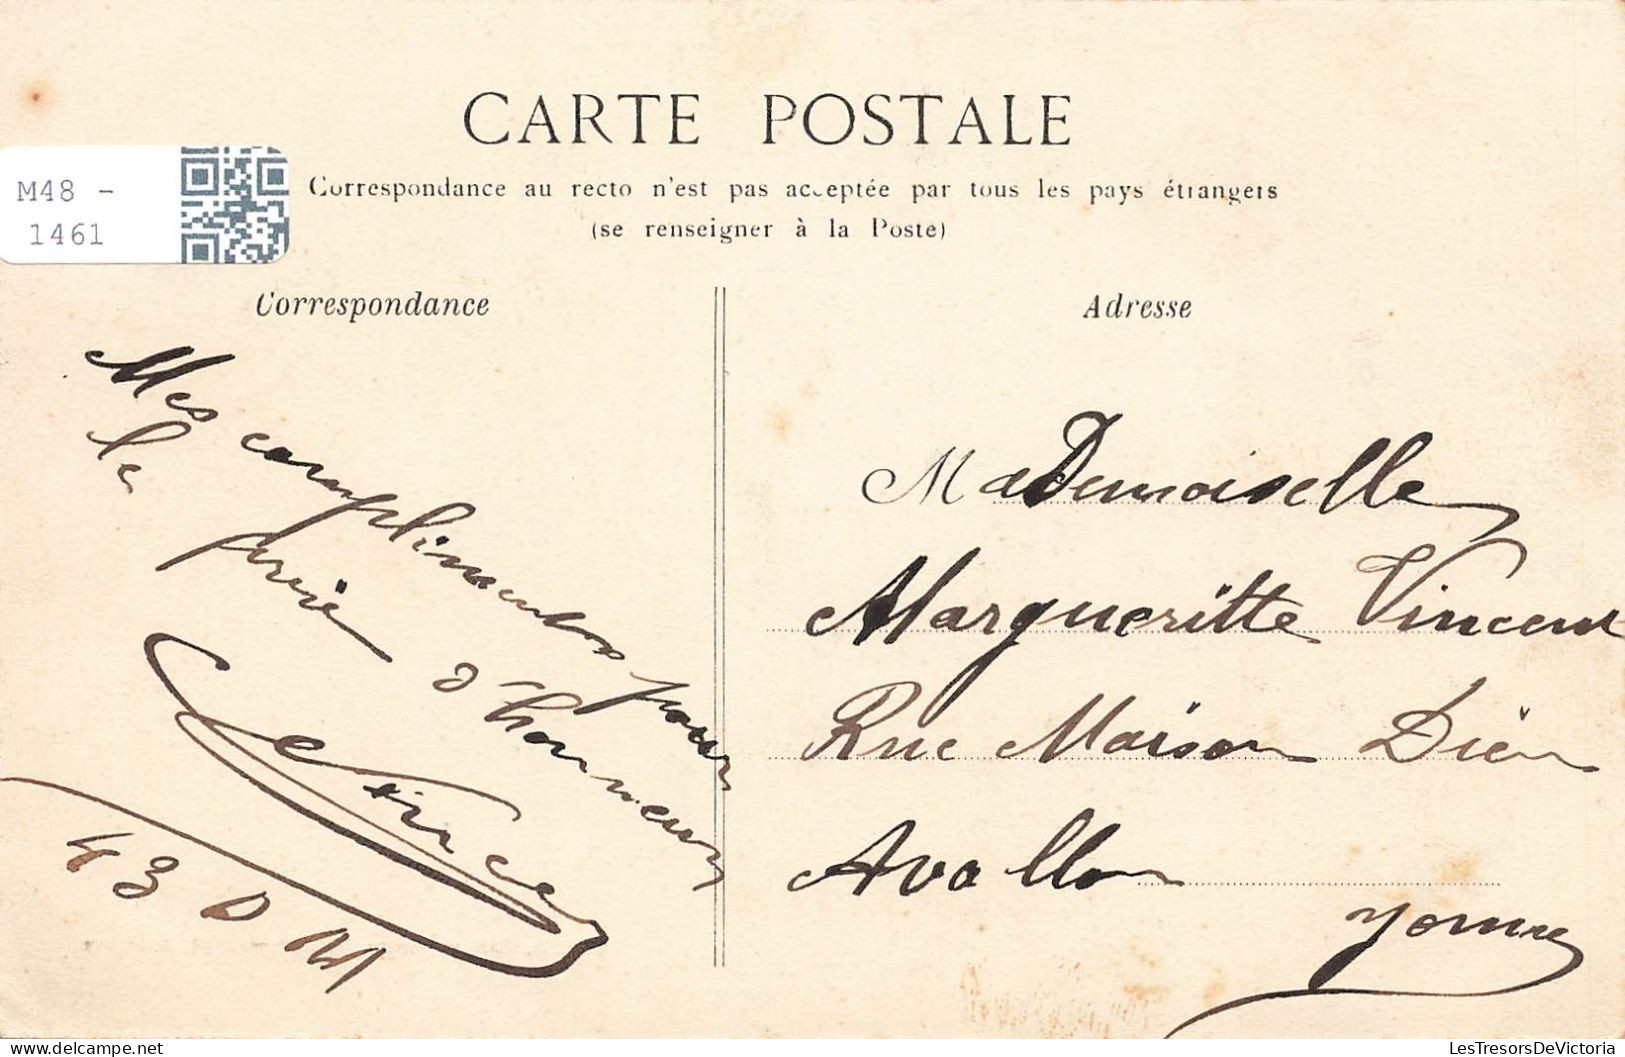 CARTE POSTALE
M48 -
1461
Correspondance au recto n'est pas acceptée par tous les pays étrangers
(se renseigner à la Poste)
Correspondance
Mes compliments pour
la prié d'honneur
43 D M
Adresse
MaDemoiselle
Margueritte Vincent
Rue Maison Dieu
Avallon
Yonne
LesTresorsDeVictoria
delcampe.net